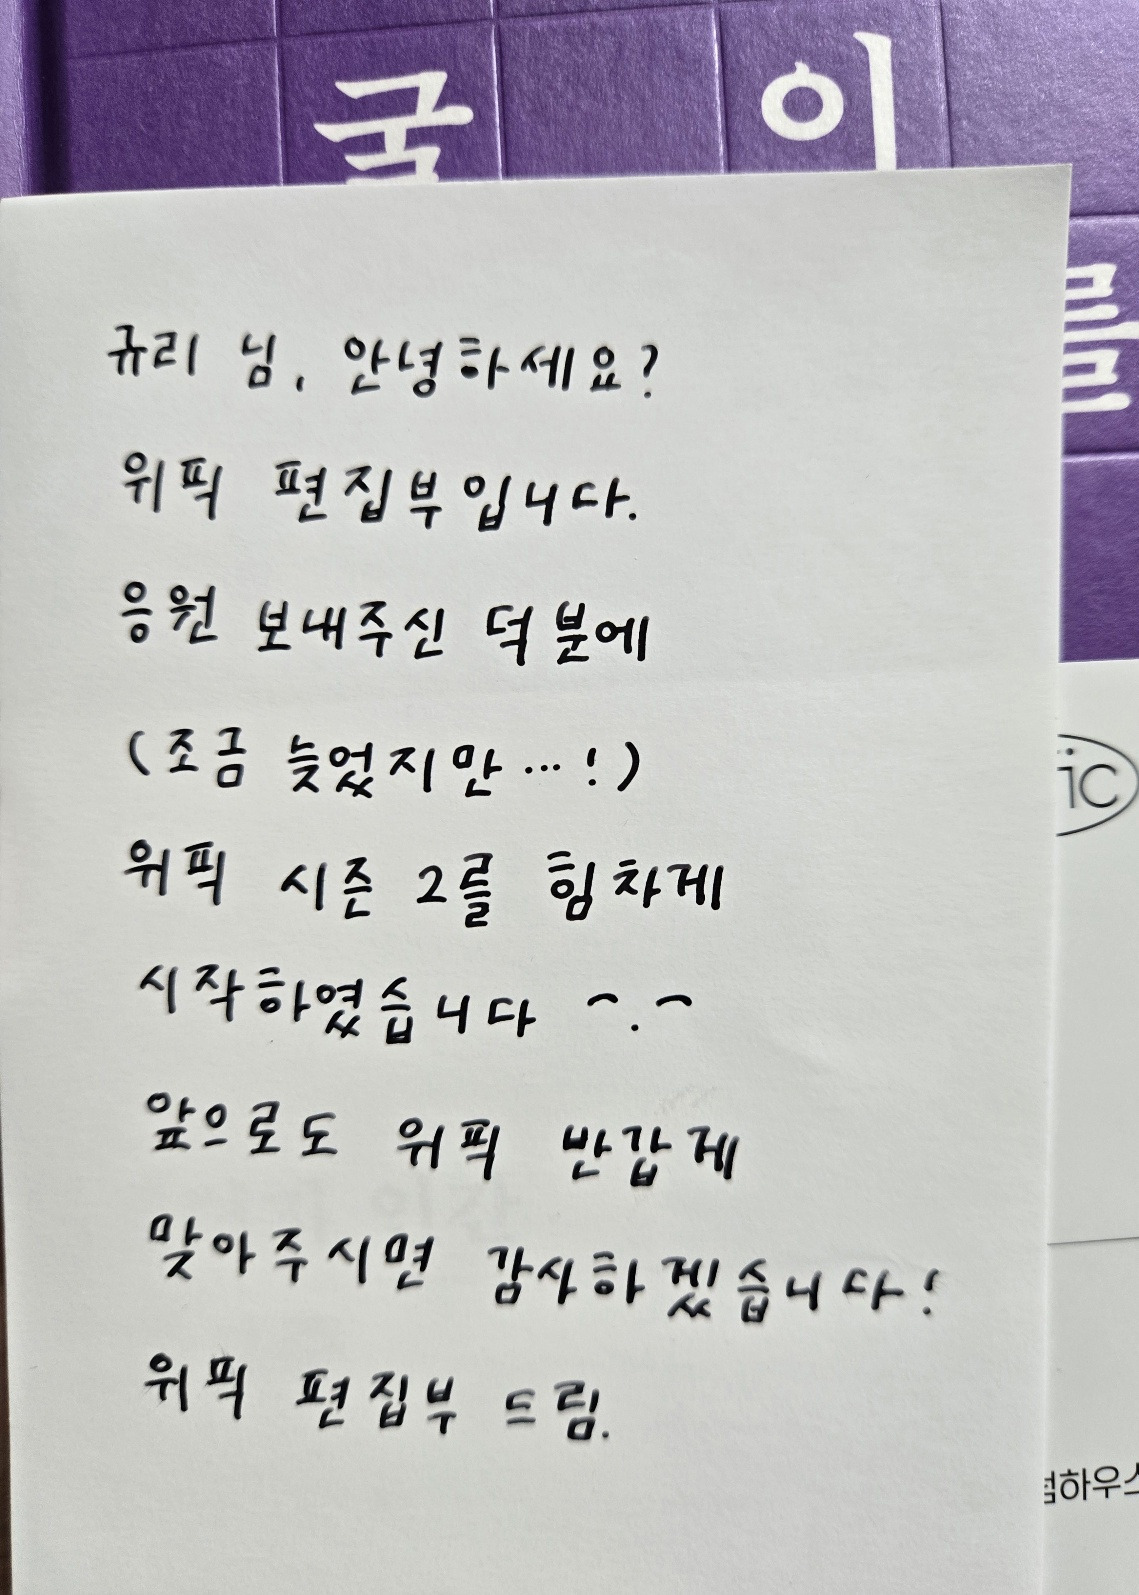 굴 이
를
규리 님, 안녕하세요?
위픽 편집부입니다.
응원 보내주신 덕분에
(조금 늦었지만…!)
위픽 시즌 2를 힘차게
시작하였습니다 ^.^
앞으로도 위픽 반갑게
맞아주시면 감사하겠습니다!
위픽 편집부 드림.
ic